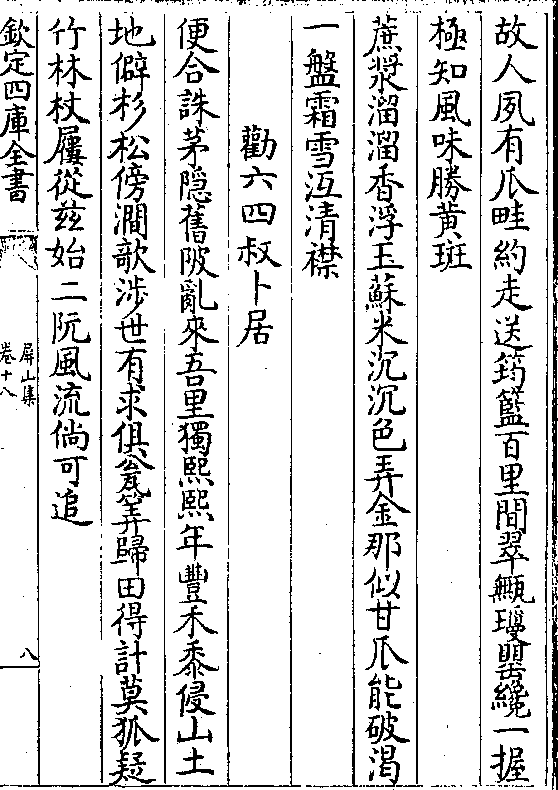 故人夙有瓜畦約走送筠籃百里間翠甒瓊罌纔一握
極知風味勝黄斑
蔗漿溜溜香浮玉蘇米沉沉色弄金那似甘瓜能破渇
一盤霜雪沍清襟
勸六四叔卜居
便合誅茅隠舊陂亂來吾里獨熙熙年豐禾黍侵山土
地僻杉松傍澗歌渉世有求俱瓮筭歸田得計莫狐疑
竹林杖屨從兹始二阮風流倘可追
欽定四庫全書
屏山集
卷十八
八